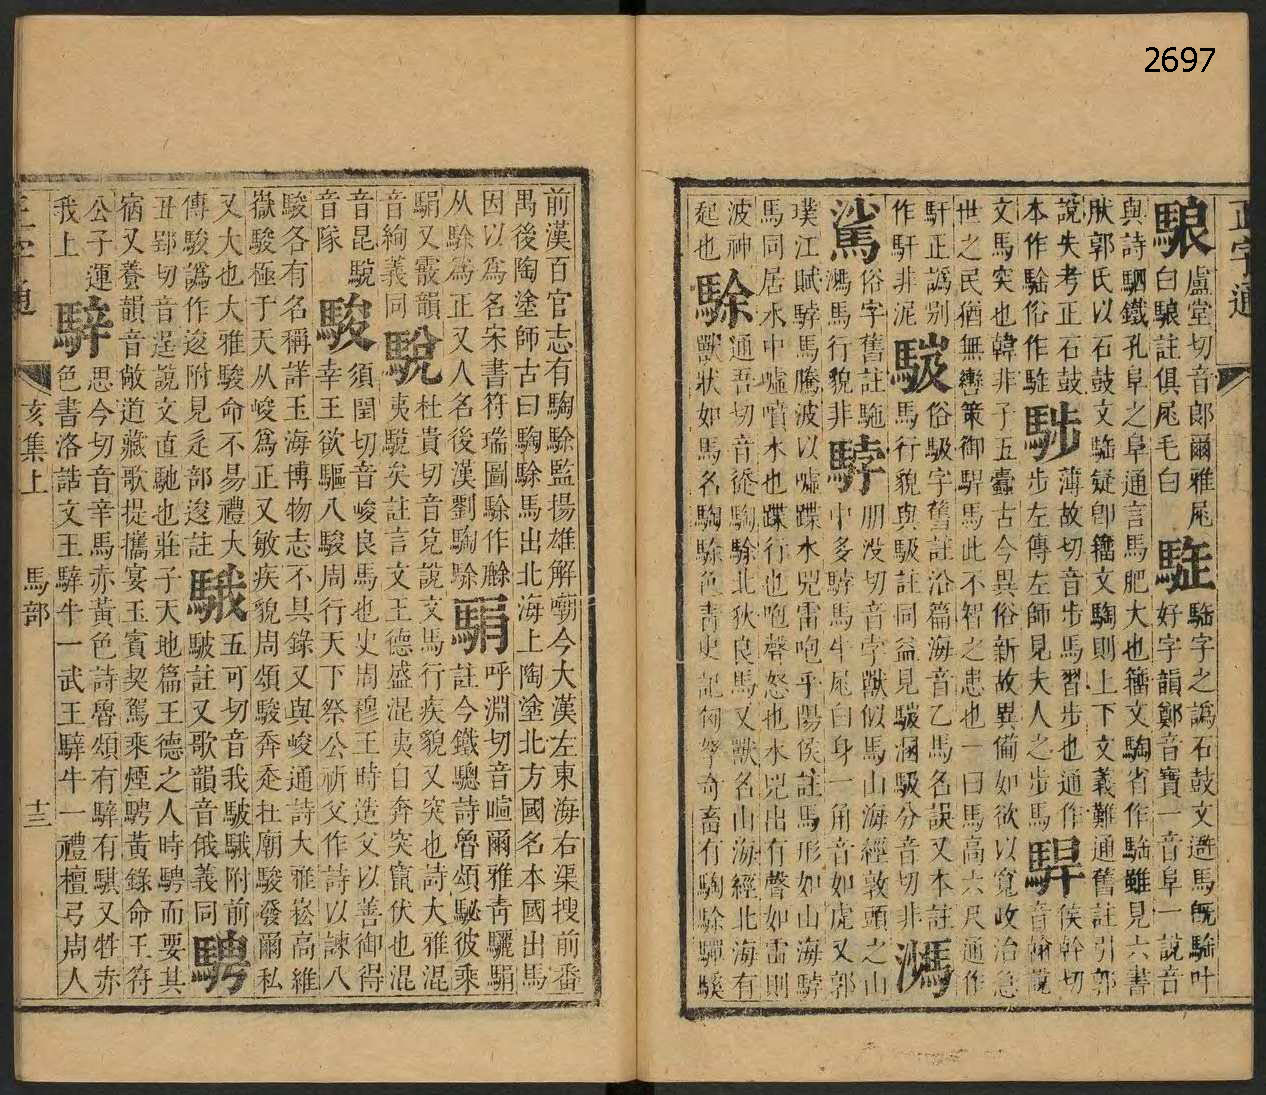 2697
正字通
騴盧堂切音郎爾雅尾
白騴註俱尾毛白
好字韻鄭音寶一音阜一說音
與詩駟鐵孔阜之阜通言馬肥大也籀文騊省作
雖見六書
郭氏以石鼓文
疑卽籀文騊則上下文義難通舊註引郭
說失考正石鼓
本作
俗作
駂薄故切音步馬習步也通作
步左傳左師見夫人之步馬
駻侯幹切
音翰說
文馬突也韓非子五蠹古今異俗新故異備如欲以寬政治急
世之民猶無轡策御駻馬此不智之患也一曰馬高六尺通作
馯正譌別
作馯非泥
俗馺字舊註沿篇海音乙馬名誤又本註
馬行貌與馺註同益見
馺分音切非
俗字舊註
馬行貌非
馞朋沒切音孛獸似馬山海經敦頭之山
中多馞馬牛尾白身一角音如虎又郭
璞江賦馞馬騰波以噓蹀水兕雷咆乎陽侯註馬形如山海馞
馬同居水中噓噴水也蹀行也咆聲怒也水兕出有聲如雷則
波神
起也
駼通吾切音徒騊駼北狄良馬又獸名山海經北海有
獸狀如馬名騊駼色靑史記匈奴奇畜有騊駼驒騱
前漢百官志有騊駼監揚雄解嘲今大漢左東海右渠搜前番
禺後陶塗師古曰騊駼馬出北海上陶塗北方國名本國出馬
因以爲名宋書符瑞圖駼作
駽呼淵切音暄爾雅靑驪駽
从駼爲正又人名後漢劉騊駼
註今鐵驄詩魯頌駜彼乘
駽又霰韻
音絢義同
駾杜貴切音兌說文馬行疾貌又突也詩大雅混
夷駾矣註言文王德盛混夷自奔突竄伏也混
音昆駾
音隊
駿須閏切音峻良馬也史周穆王時造父以善御得
幸王欲驅八駿周行天下祭公祈父作詩以諫八
駿各有名稱詳玉海博物志不具錄又與峻通詩大雅崧高維
嶽駿極于天从峻爲正又敏疾貌周頌駿奔走在廟駿發爾私
又大也大雅駿命不易禮大
傳駿譌作逡附見辵部逡註
騀五可切音我駊騀附前
駊註又歌韻音俄義同
騁
丑郢切音逞說文直馳也莊子天地篇王德之人時騁而要其
宿又養韻音敞道藏歌提攜宴玉賓契駕乘煙騁黃錄命王符
公子運
我上
騂思今切音辛馬赤黃色詩魯頌有騂有騏又牲赤
色書洛誥文王騂牛一武王騂牛一禮檀弓周人
正字通
亥集上
馬部
十三